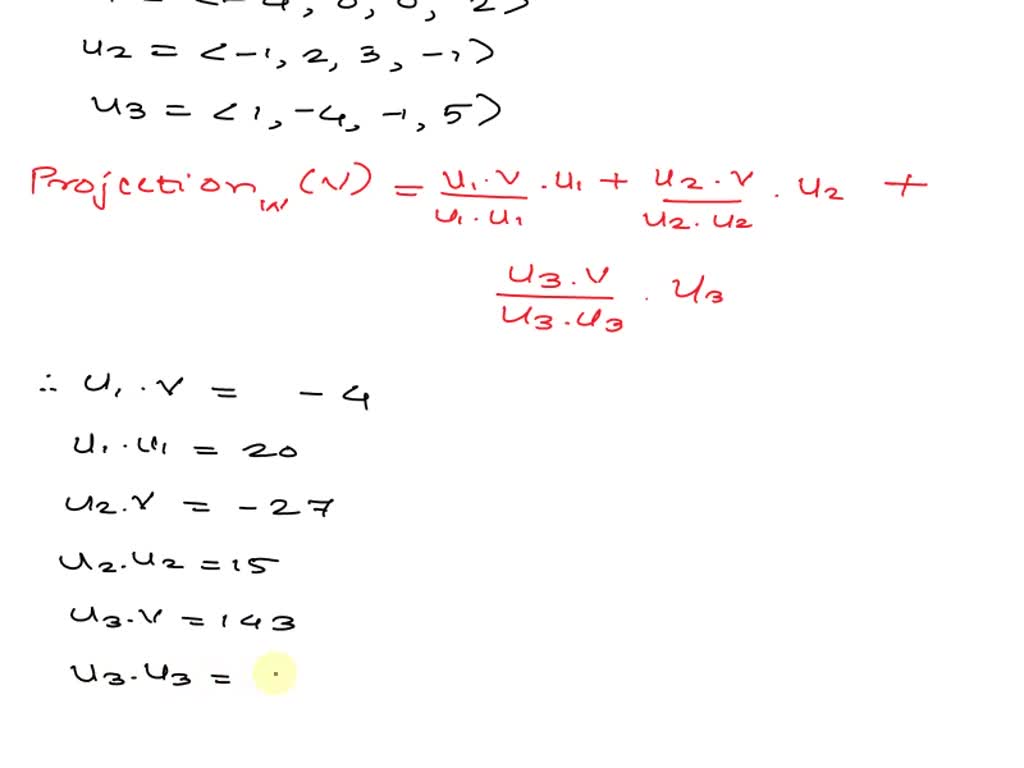 u2 = <-1, 2, 3, -1>
u3 = <1, -4, -1, 5>
Projection w (v) = u1·v / u1·u1 · u1 + u2·v / u2·u2 · u2 +
u3·v / u3·u3 · u3
∴ u1·v = -4
u1·u1 = 20
u2·v = -27
u2·u2 = 15
u3·v = 143
u3·u3 =